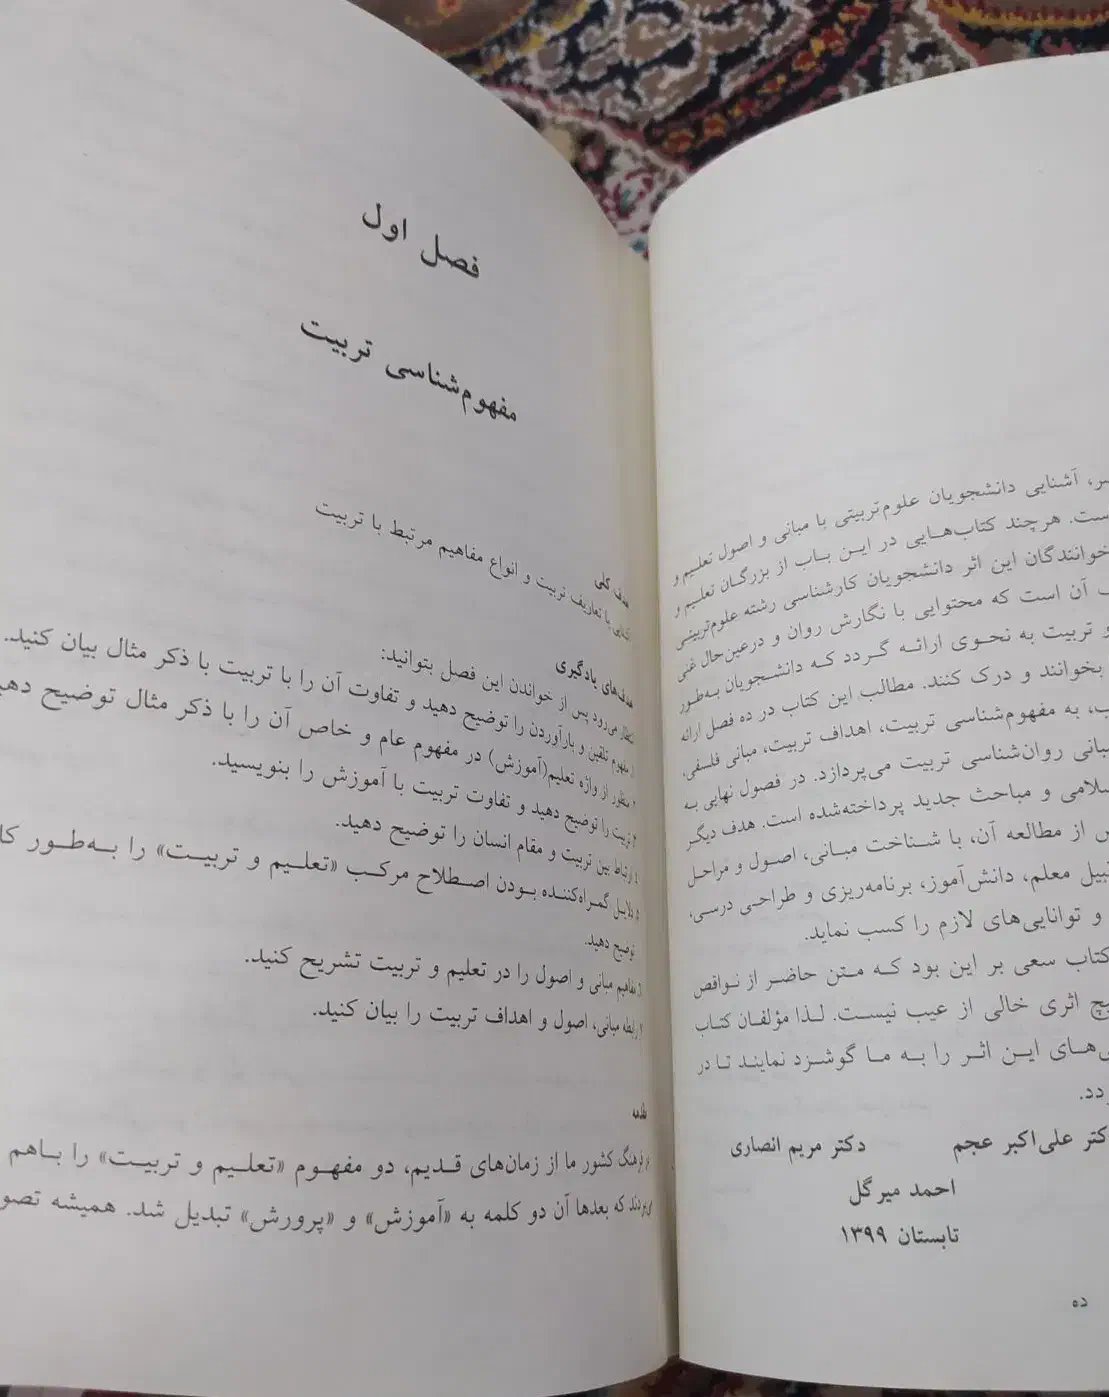 سر، آشنایی دانشجویان علوم‌تربیتی با مبانی و اصول تعلیم و
ست. هرچند کتاب‌هایی در این باب از بزرگان تعلیم و
خوانندگان این اثر دانشجویان کارشناسی رشته علوم‌تربیتی
آن است که محتوایی با نگارش روان و درعین‌حال غنی
و تربیت به نحوی ارائه گردد که دانشجویان به‌طور
بخوانند و درک کنند. مطالب این کتاب در ده فصل ارائه
ب، به مفهوم‌شناسی تربیت، اهداف تربیت، مبانی فلسفی،
بانی روان‌شناسی تربیت می‌پردازد. در فصول نهایی به
سلامی و مباحث جدید پرداخته‌شده است. هدف دیگر
س از مطالعه آن، با شناخت مبانی، اصول و مراحل
بیل معلم، دانش‌آموز، برنامه‌ریزی و طراحی درسی،
و توانایی‌های لازم را کسب نماید.
کتاب سعی بر این بود که متن حاضر از نواقص
یچ اثری خالی از عیب نیست. لذا مؤلفان کتاب
ی‌های این اثر را به ما گوشزد نمایند تا در
ردد.
کتر علی‌اکبر عجم دکتر مریم انصاری
احمد میرگل
تابستان ۱۳۹۹
ده
فصل اول
مفهوم‌شناسی تربیت
هدف کلی
آشنایی با تعاریف تربیت و انواع مفاهیم مرتبط با تربیت
هدف‌های یادگیری
انتظار می‌رود پس از خواندن این فصل بتوانید:
۱. مفهوم تلقین و بارآوردن را توضیح دهید و تفاوت آن را با تربیت با ذکر مثال بیان کنید.
۲. منظور از واژه تعلیم(آموزش) در مفهوم عام و خاص آن را با ذکر مثال توضیح دهی
۳. تربیت را توضیح دهید و تفاوت تربیت با آموزش را بنویسید.
۴. ارتباط بین تربیت و مقام انسان را توضیح دهید.
۵. دلایل گمراه‌کننده بودن اصطلاح مرکب «تعلیم و تربیت» را به‌طور کا
توضیح دهید.
۶. مفاهیم مبانی و اصول را در تعلیم و تربیت تشریح کنید.
۷. رابطه مبانی، اصول و اهداف تربیت را بیان کنید.
مقدمه
در فرهنگ کشور ما از زمان‌های قدیم، دو مفهوم «تعلیم و تربیت» را باهم
می‌بردند که بعدها آن دو کلمه به «آموزش» و «پرورش» تبدیل شد. همیشه تصو